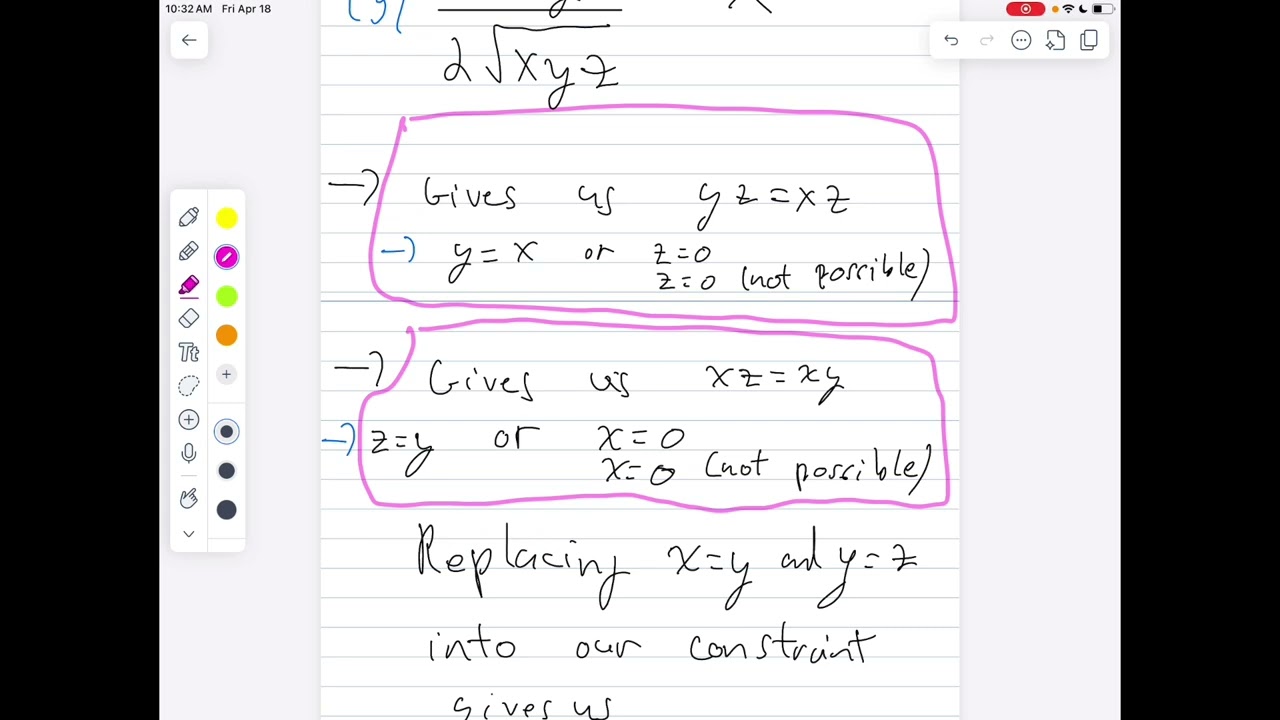 10:32 AM Fri Apr 18
(3)
2√xyz
→) Gives us yz = xz
→) y = x or z = 0
z = 0 (not possible)
→) Gives us xz = xy
→) z = y or x = 0
x = 0 (not possible)
Replacing x = y and y = z
into our constraint
gives us
Tt